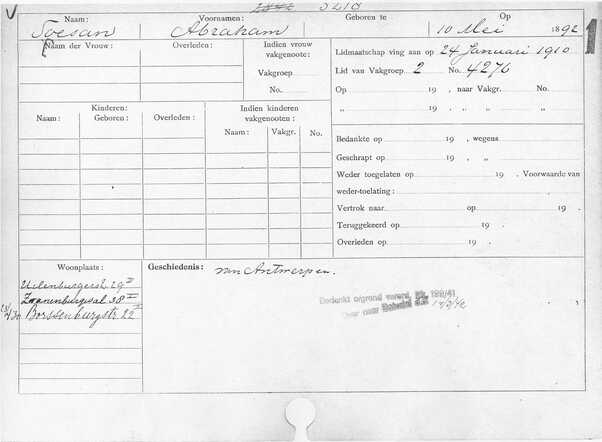 3210
Naam: Voornamen: Geboren te Op
Soesan Abraham 10 Mei 1892
1
Naam der Vrouw: Overleden: Indien vrouw vakgenoote:
Vakgroep
No.
Lidmaatschap ving aan op 24 Januari 1910
Lid van Vakgroep 2 No. 4276
Op 19 , naar Vakgr. No.
„ 19 , „ „ „
Kinderen: Indien kinderen vakgenooten:
Naam: Geboren: Overleden: Naam: Vakgr. No.
Bedankte op 19 , wegens
Geschrapt op 19 , „
Weder toegelaten op 19 . Voorwaarde van
weder-toelating:
Vertrok naar op 19 .
Teruggekeerd op 19 .
Overleden op 19 .
Woonplaats: Geschiedenis: van Antwerpen.
Uilenburgerstr. 29 II
Zwanenburgwal 38
Borssenburgstr. 22 II
Bedankt 199/41
Over naar